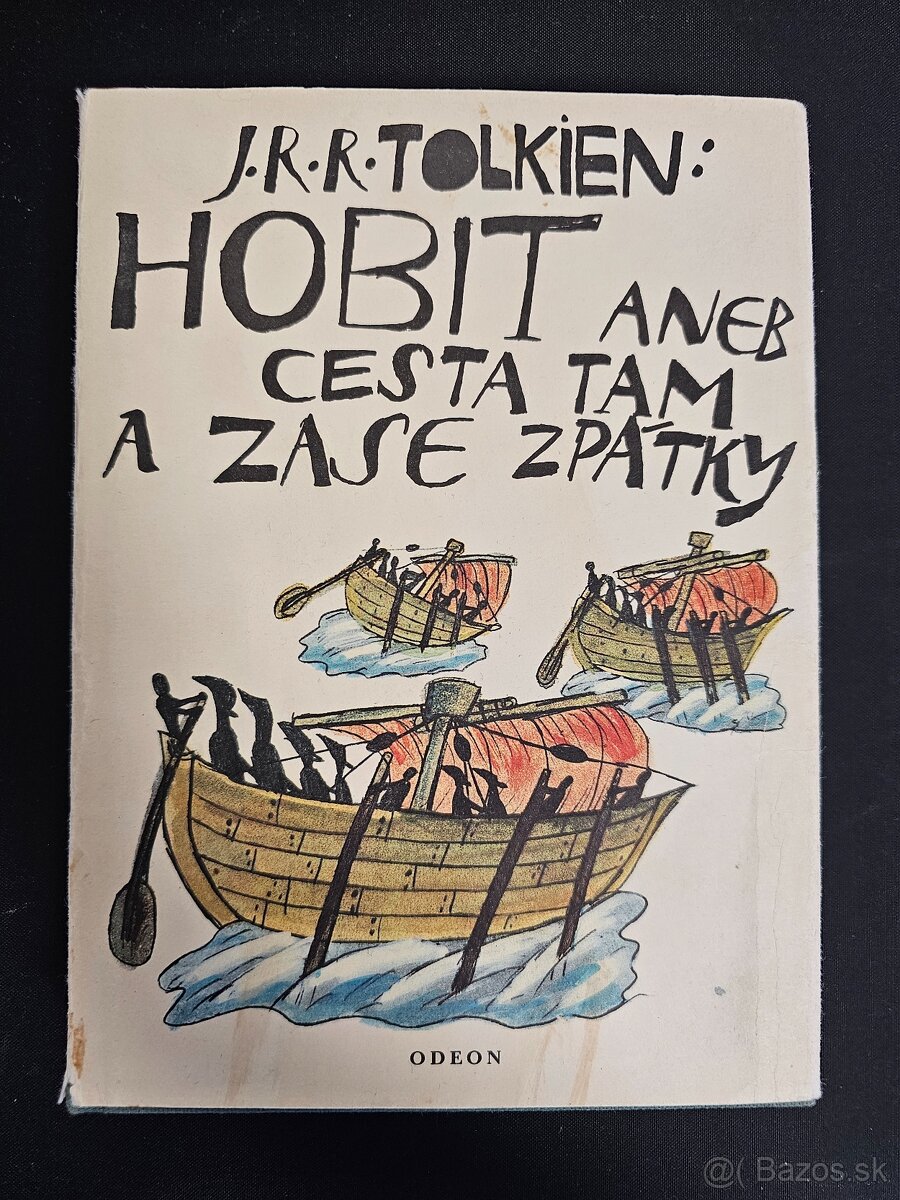 J.R.R.TOLKIEN:
HOBIT ANEB
CESTA TAM
A ZASE ZPÁTKY
ODEON
@( Bazos.sk